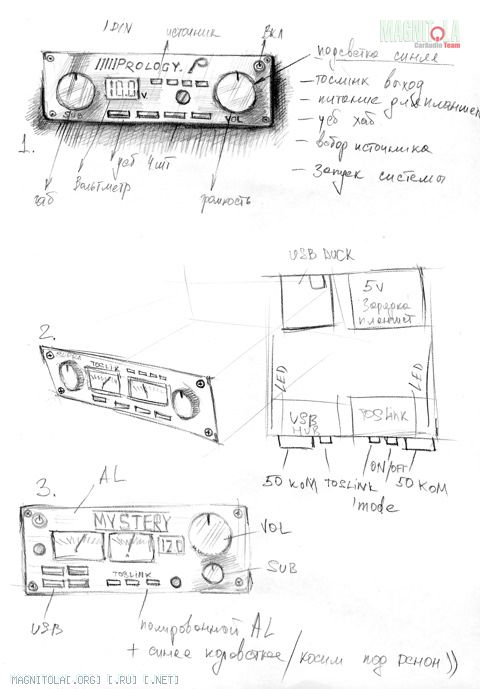 MAGNITOLA
CarAudio Team
1 DIN
источник
ВКЛ
PROLOGY. P
10.0 V
SUB
VOL
1.
саб
Вольтметр
усб 4шт
громкость
подсветка синяя
— тослинк выход
— питание для планшет
— усб хаб
— выбор источника
— запуск системы
2.
TOSLINK
USB DUCK
5V
Зарядка
планшет
LED
LED
USB
HUB
TOSLINK
50 КОМ
TOSLINK
mode
ON/OFF
50 КОМ
3.
AL
MYSTERY
12.0
TOSLINK
VOL
SUB
USB
полированной AL
+ синее / косим под
MAGNITOLA[.ORG] [.RU] [.NET]